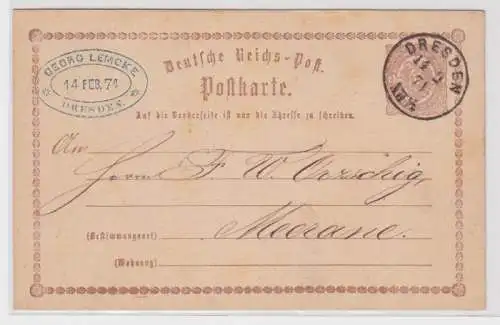 GEORG LEMCKE
14 FEB. 74
DRESDEN.
Deutsche Reichs-Post.
Postkarte.
Auf die Vorderseite ist nur die Adresse zu schreiben.
DRESDEN
14 2
74
An
Herrn F. W.
(Bestimmungsort) Meerane.
(Wohnung)